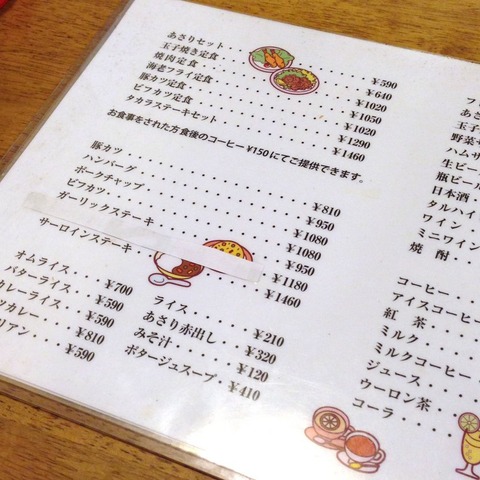 あさりセット・・・・・・・・・¥590
玉子焼き定食・・・・・・・・・¥640
焼肉定食・・・・・・・・・¥1020
海老フライ定食・・・・・・・・・¥1050
豚カツ定食・・・・・・・・・¥1020
ビフカツ定食・・・・・・・・・¥1290
タカラステーキセット・・・・・・・・・¥1460
お食事をされた方食後のコーヒー¥150にてご提供できます。
豚カツ・・・・・・・・・¥810
ハンバーグ・・・・・・・・・¥950
ポークチャップ・・・・・・・・・¥1080
ビフカツ・・・・・・・・・¥1080
¥950
ガーリックステーキ・・・・・・・・・¥1180
サーロインステーキ・・・・・・・・・¥1460
オムライス・・・・¥700
バターライス・・・・¥590
カレーライス・・・・¥590
ッカレー・・・・¥810
リアン・・・・¥590
ライス・・・・・・¥210
あさり赤出し・・・・¥320
みそ汁・・・・・・¥120
ポタージュスープ・・¥410
フ
あさ
玉子
野菜サ
ハムサ
生ビー
瓶ビール
日本酒・
タルハイ
ワイン・
ミニワイン
焼 酎・
コーヒー・・
アイスコーヒー
紅 茶・・・
ミルク・・・
ミルクコーヒー・
ジュース・・・
ウーロン茶・・
コーラ・・・